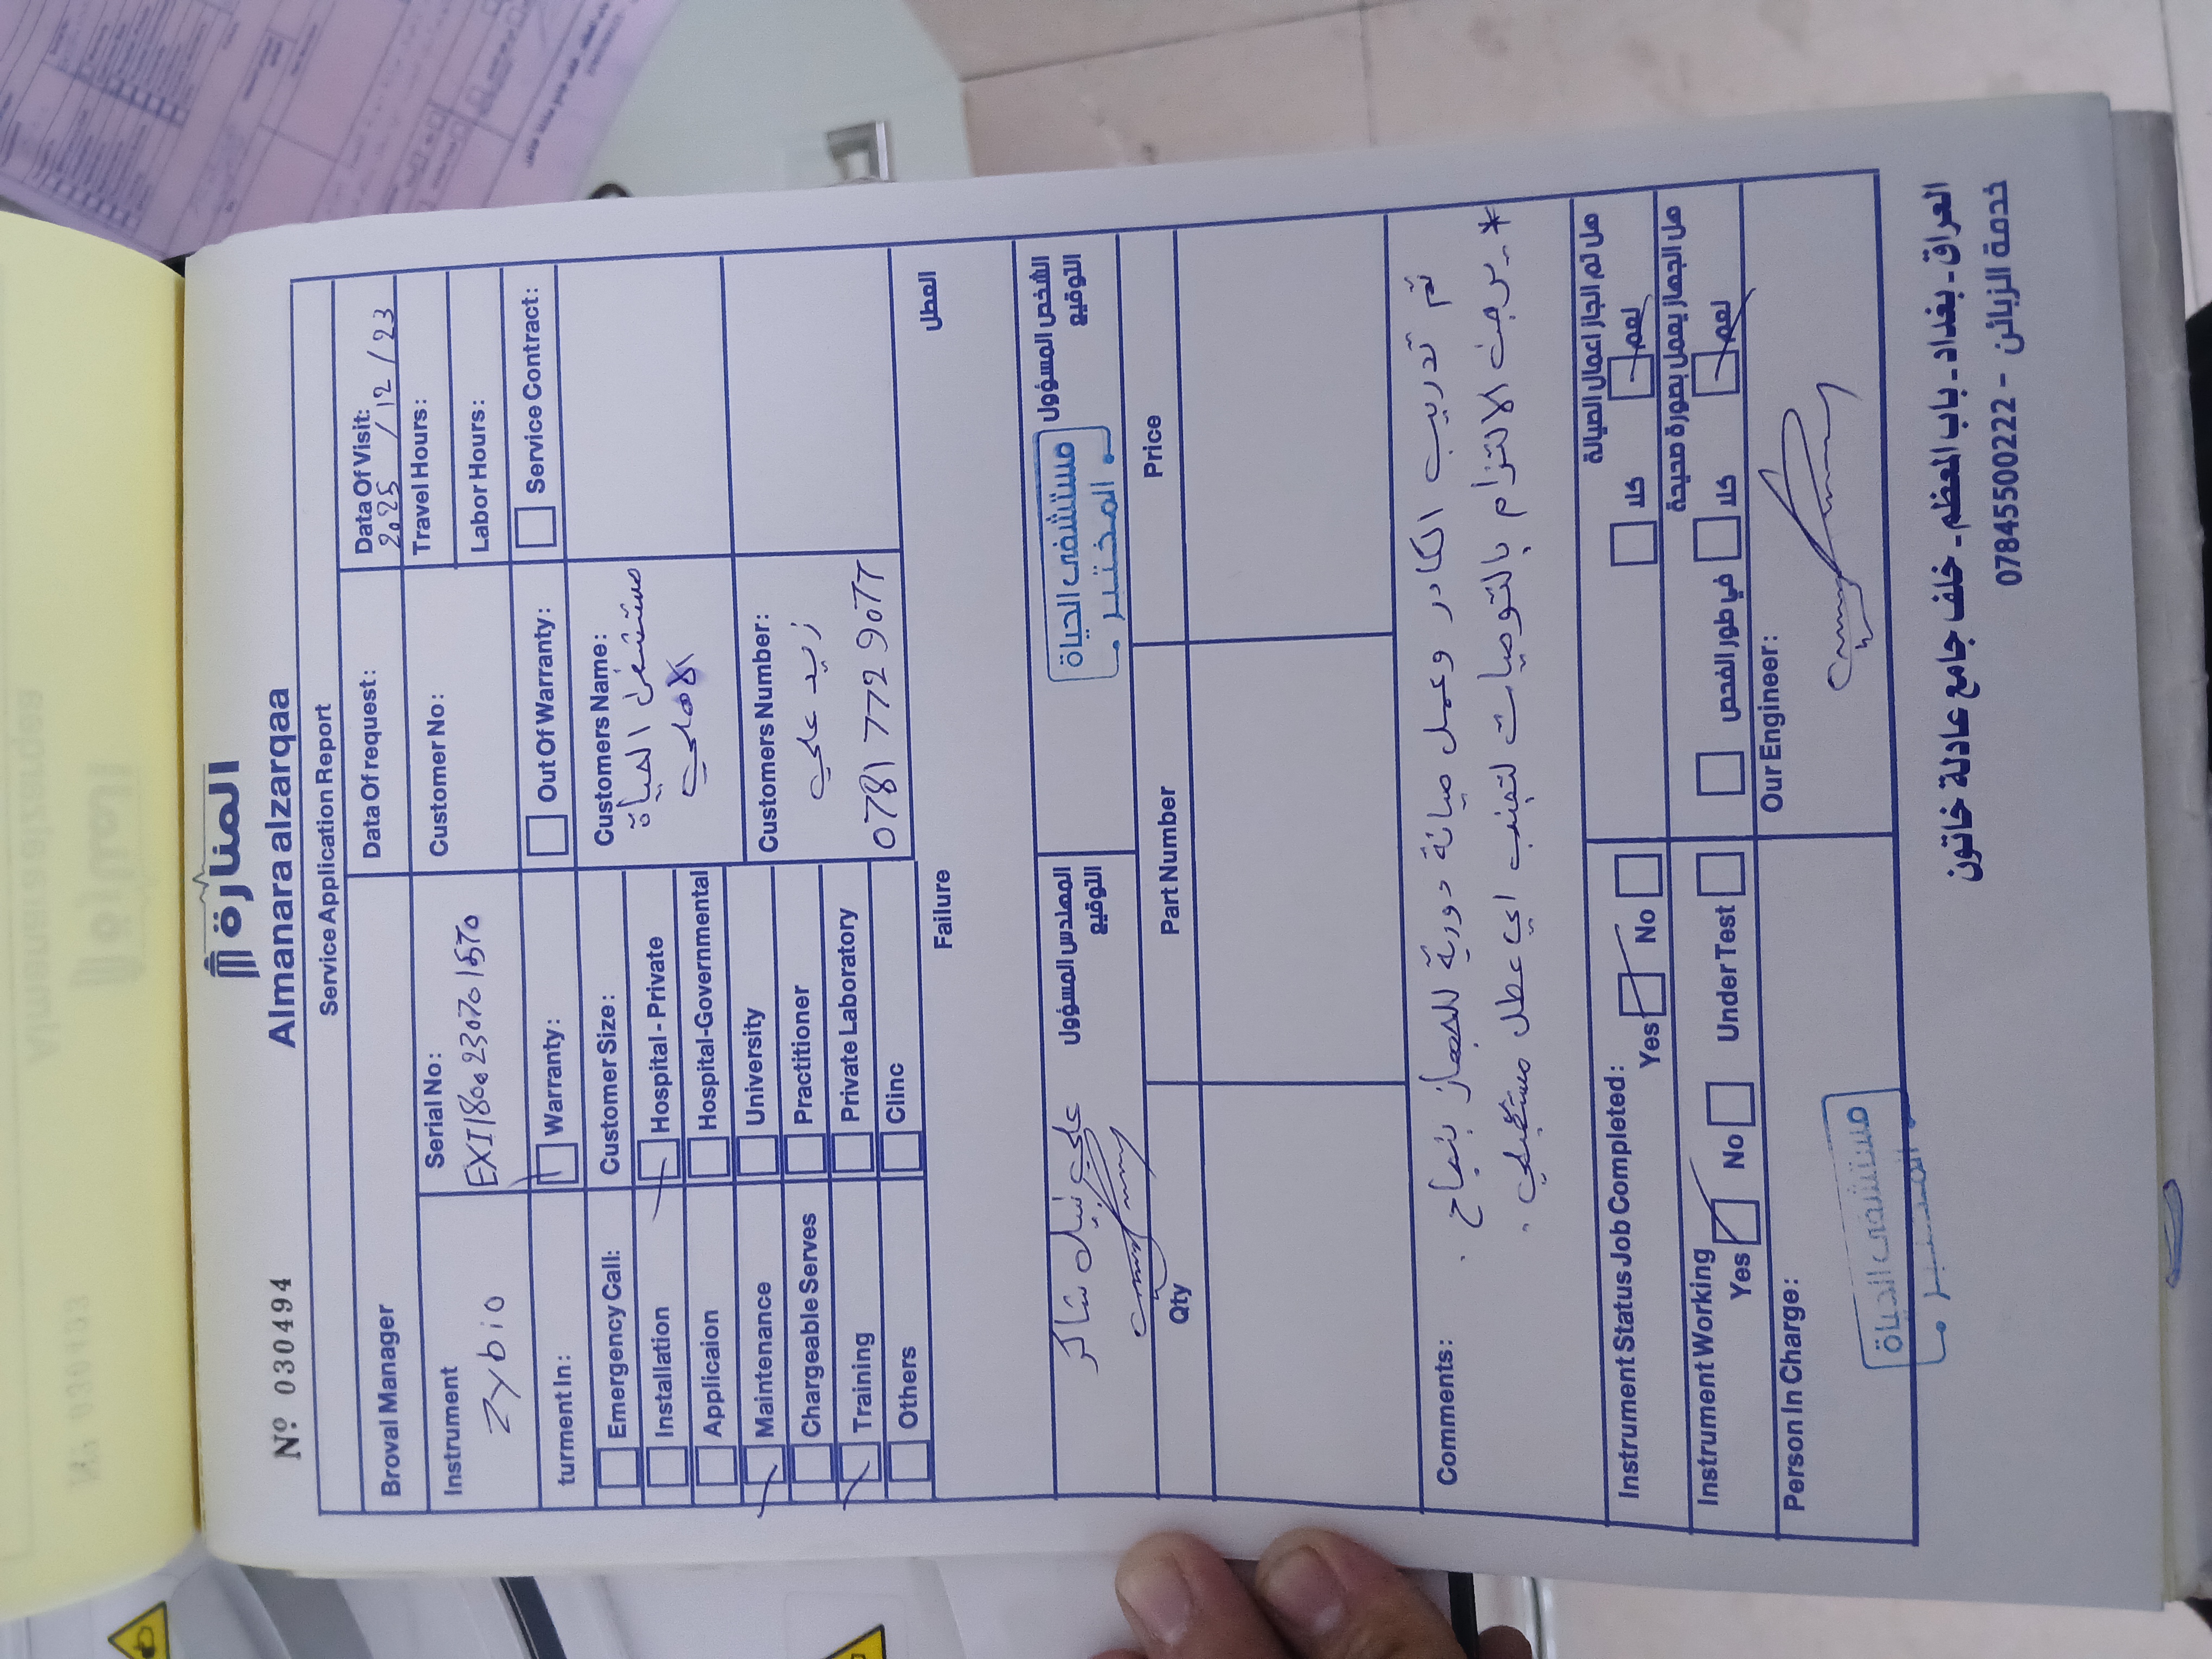 Nº 030494
المنارة
Almanara alzarqaa
Service Application Report
Broval Manager
Data Of request:
Data Of Visit:
2025 / 12 / 23
Instrument
Zybio
Serial No:
Customer No:
Travel Hours:
Labor Hours:
turment In:
Warranty:
Out Of Warranty:
Service Contract:
Emergency Call:
Installation
Applicaion
Maintenance
Chargeable Serves
Training
Others
Customer Size:
Hospital - Private
Hospital-Governmental
University
Practitioner
Private Laboratory
Clinc
Customers Name:
مستشفى الحياة
الاهلي
Customers Number:
زيد علي
Failure
العطل
علي نبيل شاكر
المهندس المسؤول
التوقيع
مستشفى الحياة
المختبر
الشخص المسؤول
التوقيع
Qty
Part Number
Price
Comments:
تم تدريب الكادر وعمل صيانة دورية للجهاز بنجاح .
* يرجى الالتزام بالتوصيات لتجنب اي عطل مستقبلي .
Instrument Status Job Completed:
Yes No
هل تم انجاز اعمال الصيانة
كلا نعم
Instrument Working
Yes No Under Test
هل الجهاز يعمل بصورة صحيحة
في طور الفحص كلا نعم
Person In Charge:
مستشفى الحياة
المختبر
Our Engineer:
العراق - بغداد - باب المعظم - خلف جامع عادلة خاتون
خدمة الزبائن - 07845500222